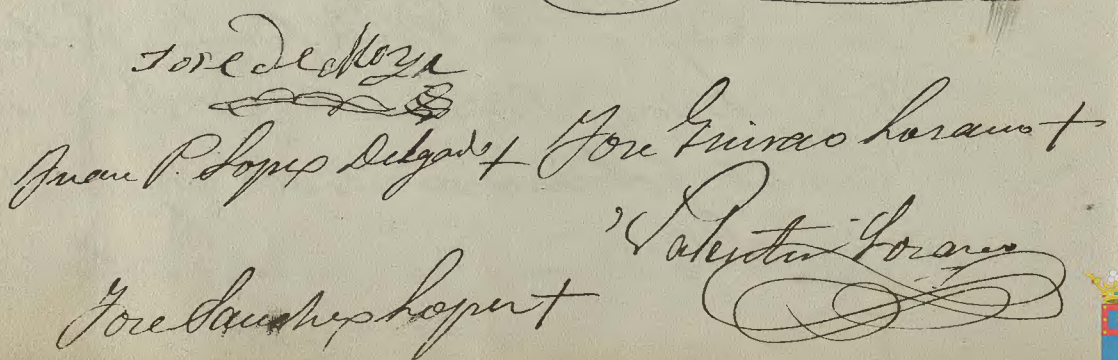 Jose De Moya
Juan P. Lopez Delgado + Jose Guirao Lozano +
Valentin Lozano
Jose Sanchez Lopez +